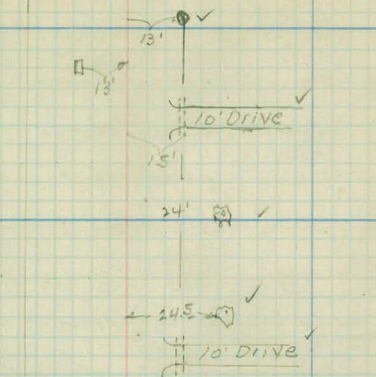 13'
13'
10' Drive
15'
24'
24.5
10' Drive